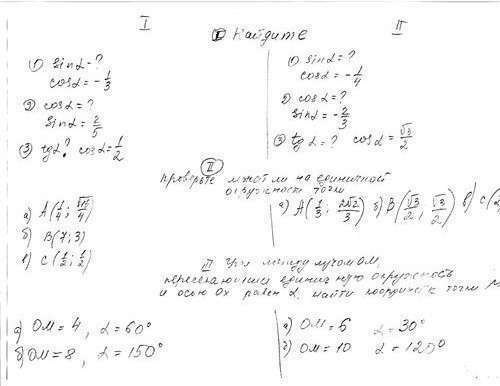 I
II
I Найдите
1) sinα = ?
cosα = -1/3
2) cosα = ?
sinα = 2/5
3) tgα? cosα = 1/2
1) sinα = ?
cosα = -1/4
2) cosα = ?
sinα = -2/3
3) tgα = ? cosα = √3/2
II
Проверьте лежат ли на единичной
окружности точки
а) A(1/4; √15/4)
б) B(7; 3)
в) C(1/2; 1/2)
а) A(1/3; 2√2/3) б) B(√3/2; √3/2) в) C(
III Угол между лучом OM,
пересекающим единичную окружность
и осью Ox равен α. найти координ точки
а) OM = 4, α = 60°
б) OM = 8, α = 150°
а) OM = 6 α = 30°
б) OM = 10 α = 120°